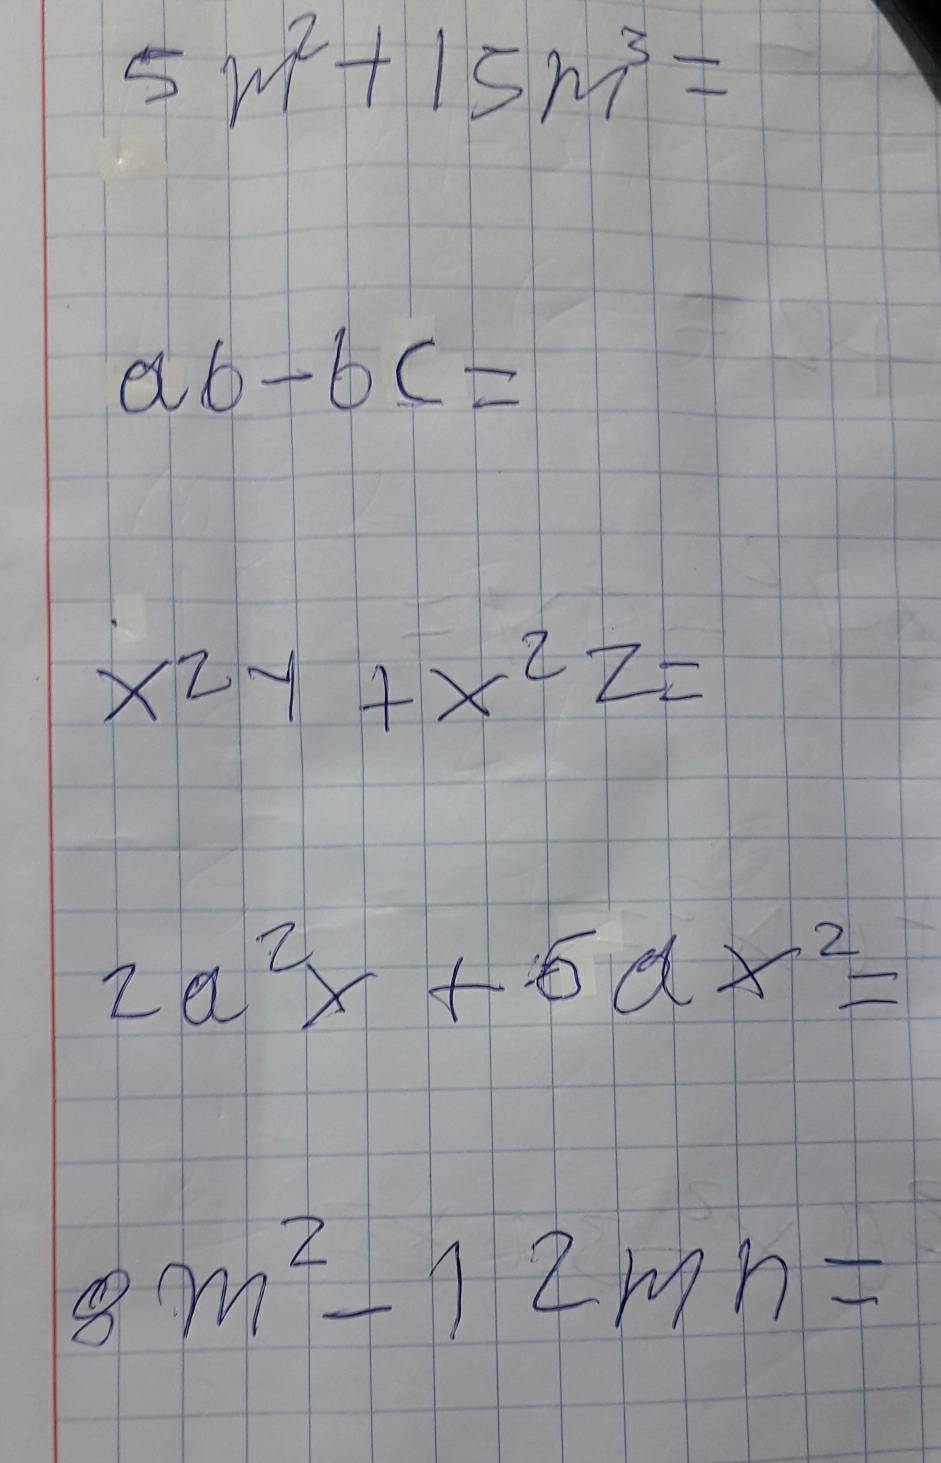 5m²+15m³=
ab-bc=
x²y+x²z=
2a²x+6ax²=
8m²-12mn=